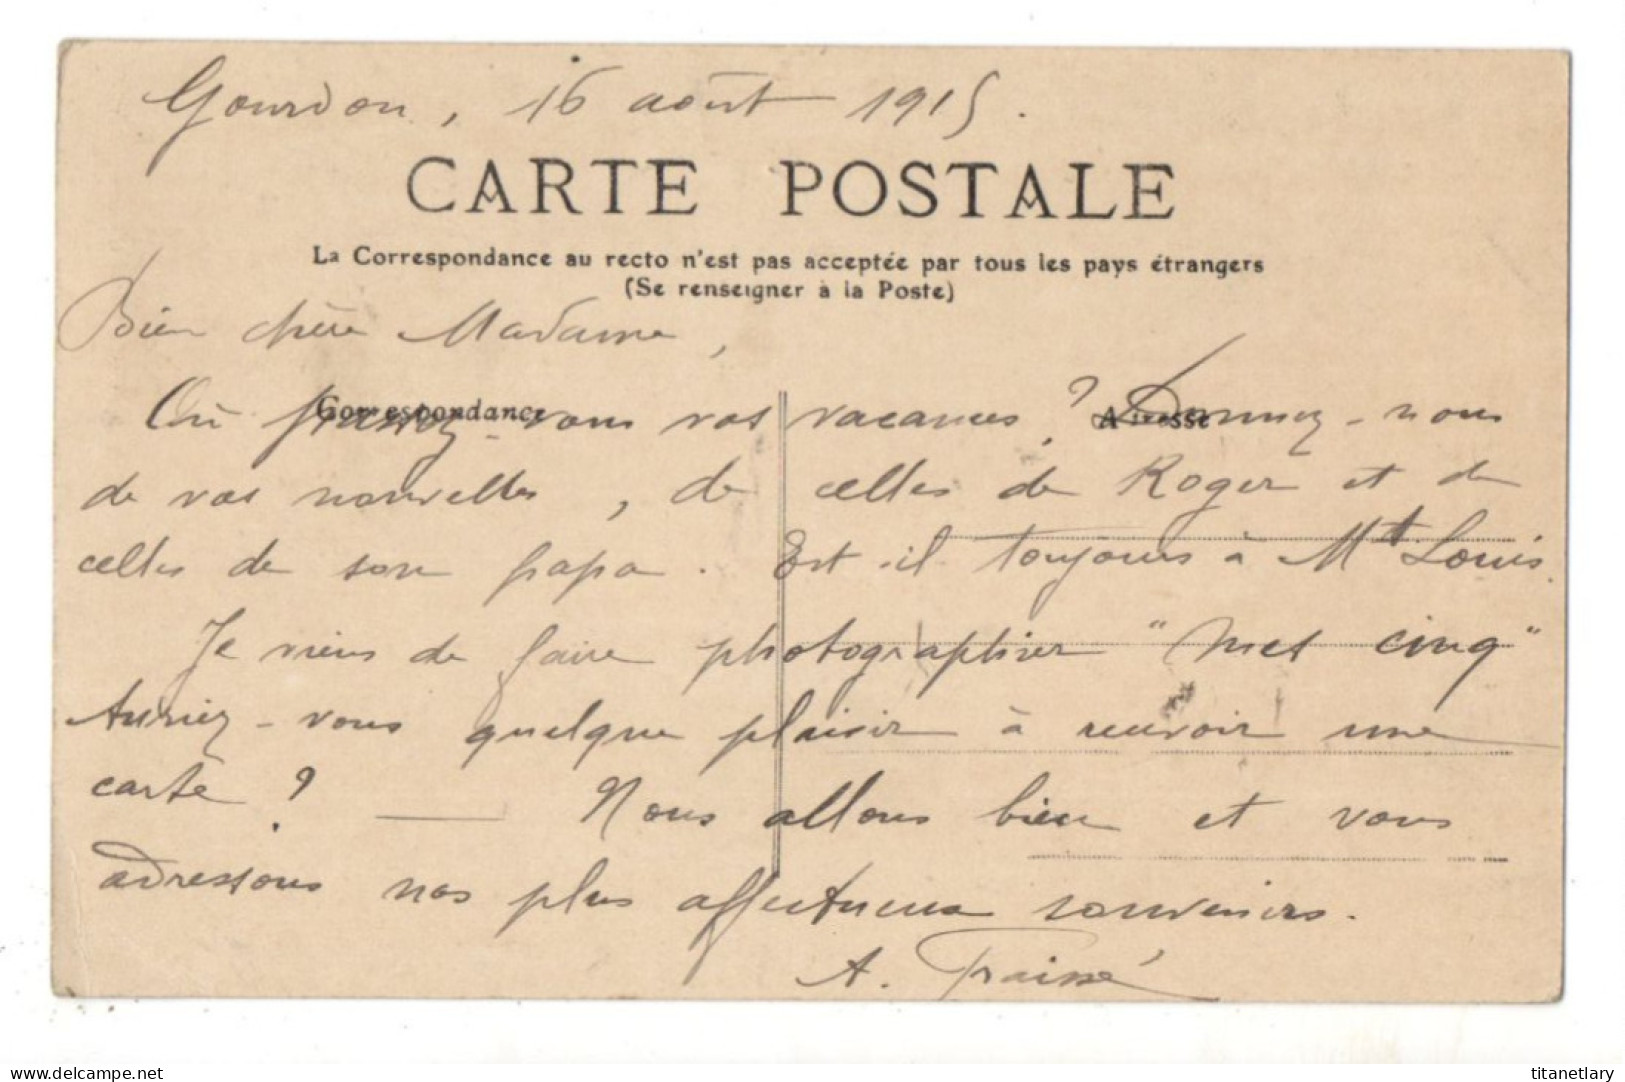 Gourdon, 16 août 1915.
CARTE POSTALE
La Correspondance au recto n'est pas acceptée par tous les pays étrangers
(Se renseigner à la Poste)
Bien chère Madame,
Correspondance
Adresse
Où prenez-vous vos vacances? Donnez-nous
de vos nouvelles, de celles de Roger et de
celles de son papa. Est-il toujours à Mt Louis.
Je viens de faire photographier "mes cinq"
Auriez-vous quelque plaisir à recevoir une
carte? — Nous allons bien et vous
adressons nos plus affectueux souvenirs.
A. Fraissé
delcampe.net
titanetlary